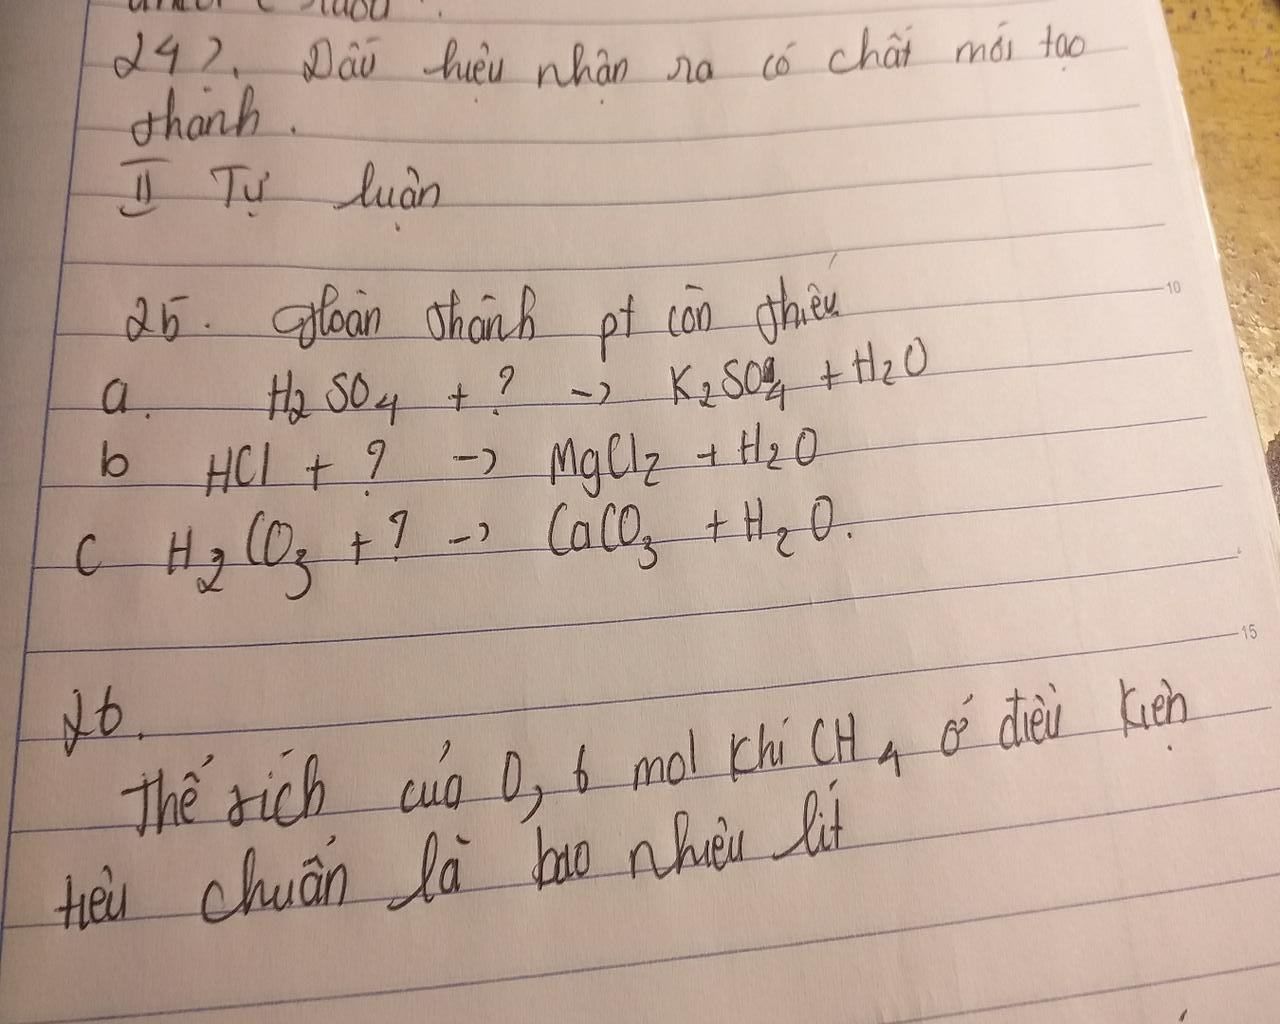 24 ?. Dấu hiệu nhận ra có chất mới tạo
thành.
II Tự luận
10
25. Hoàn thành pt còn thiếu
a. H2SO4 + ? -> K2SO4 + H2O
b HCl + ? -> MgCl2 + H2O
c H2CO3 + ? -> CaCO3 + H2O.
15
26.
Thể tích của 0,6 mol khí CH4 ở điều kiện
tiêu chuẩn là bao nhiêu lít